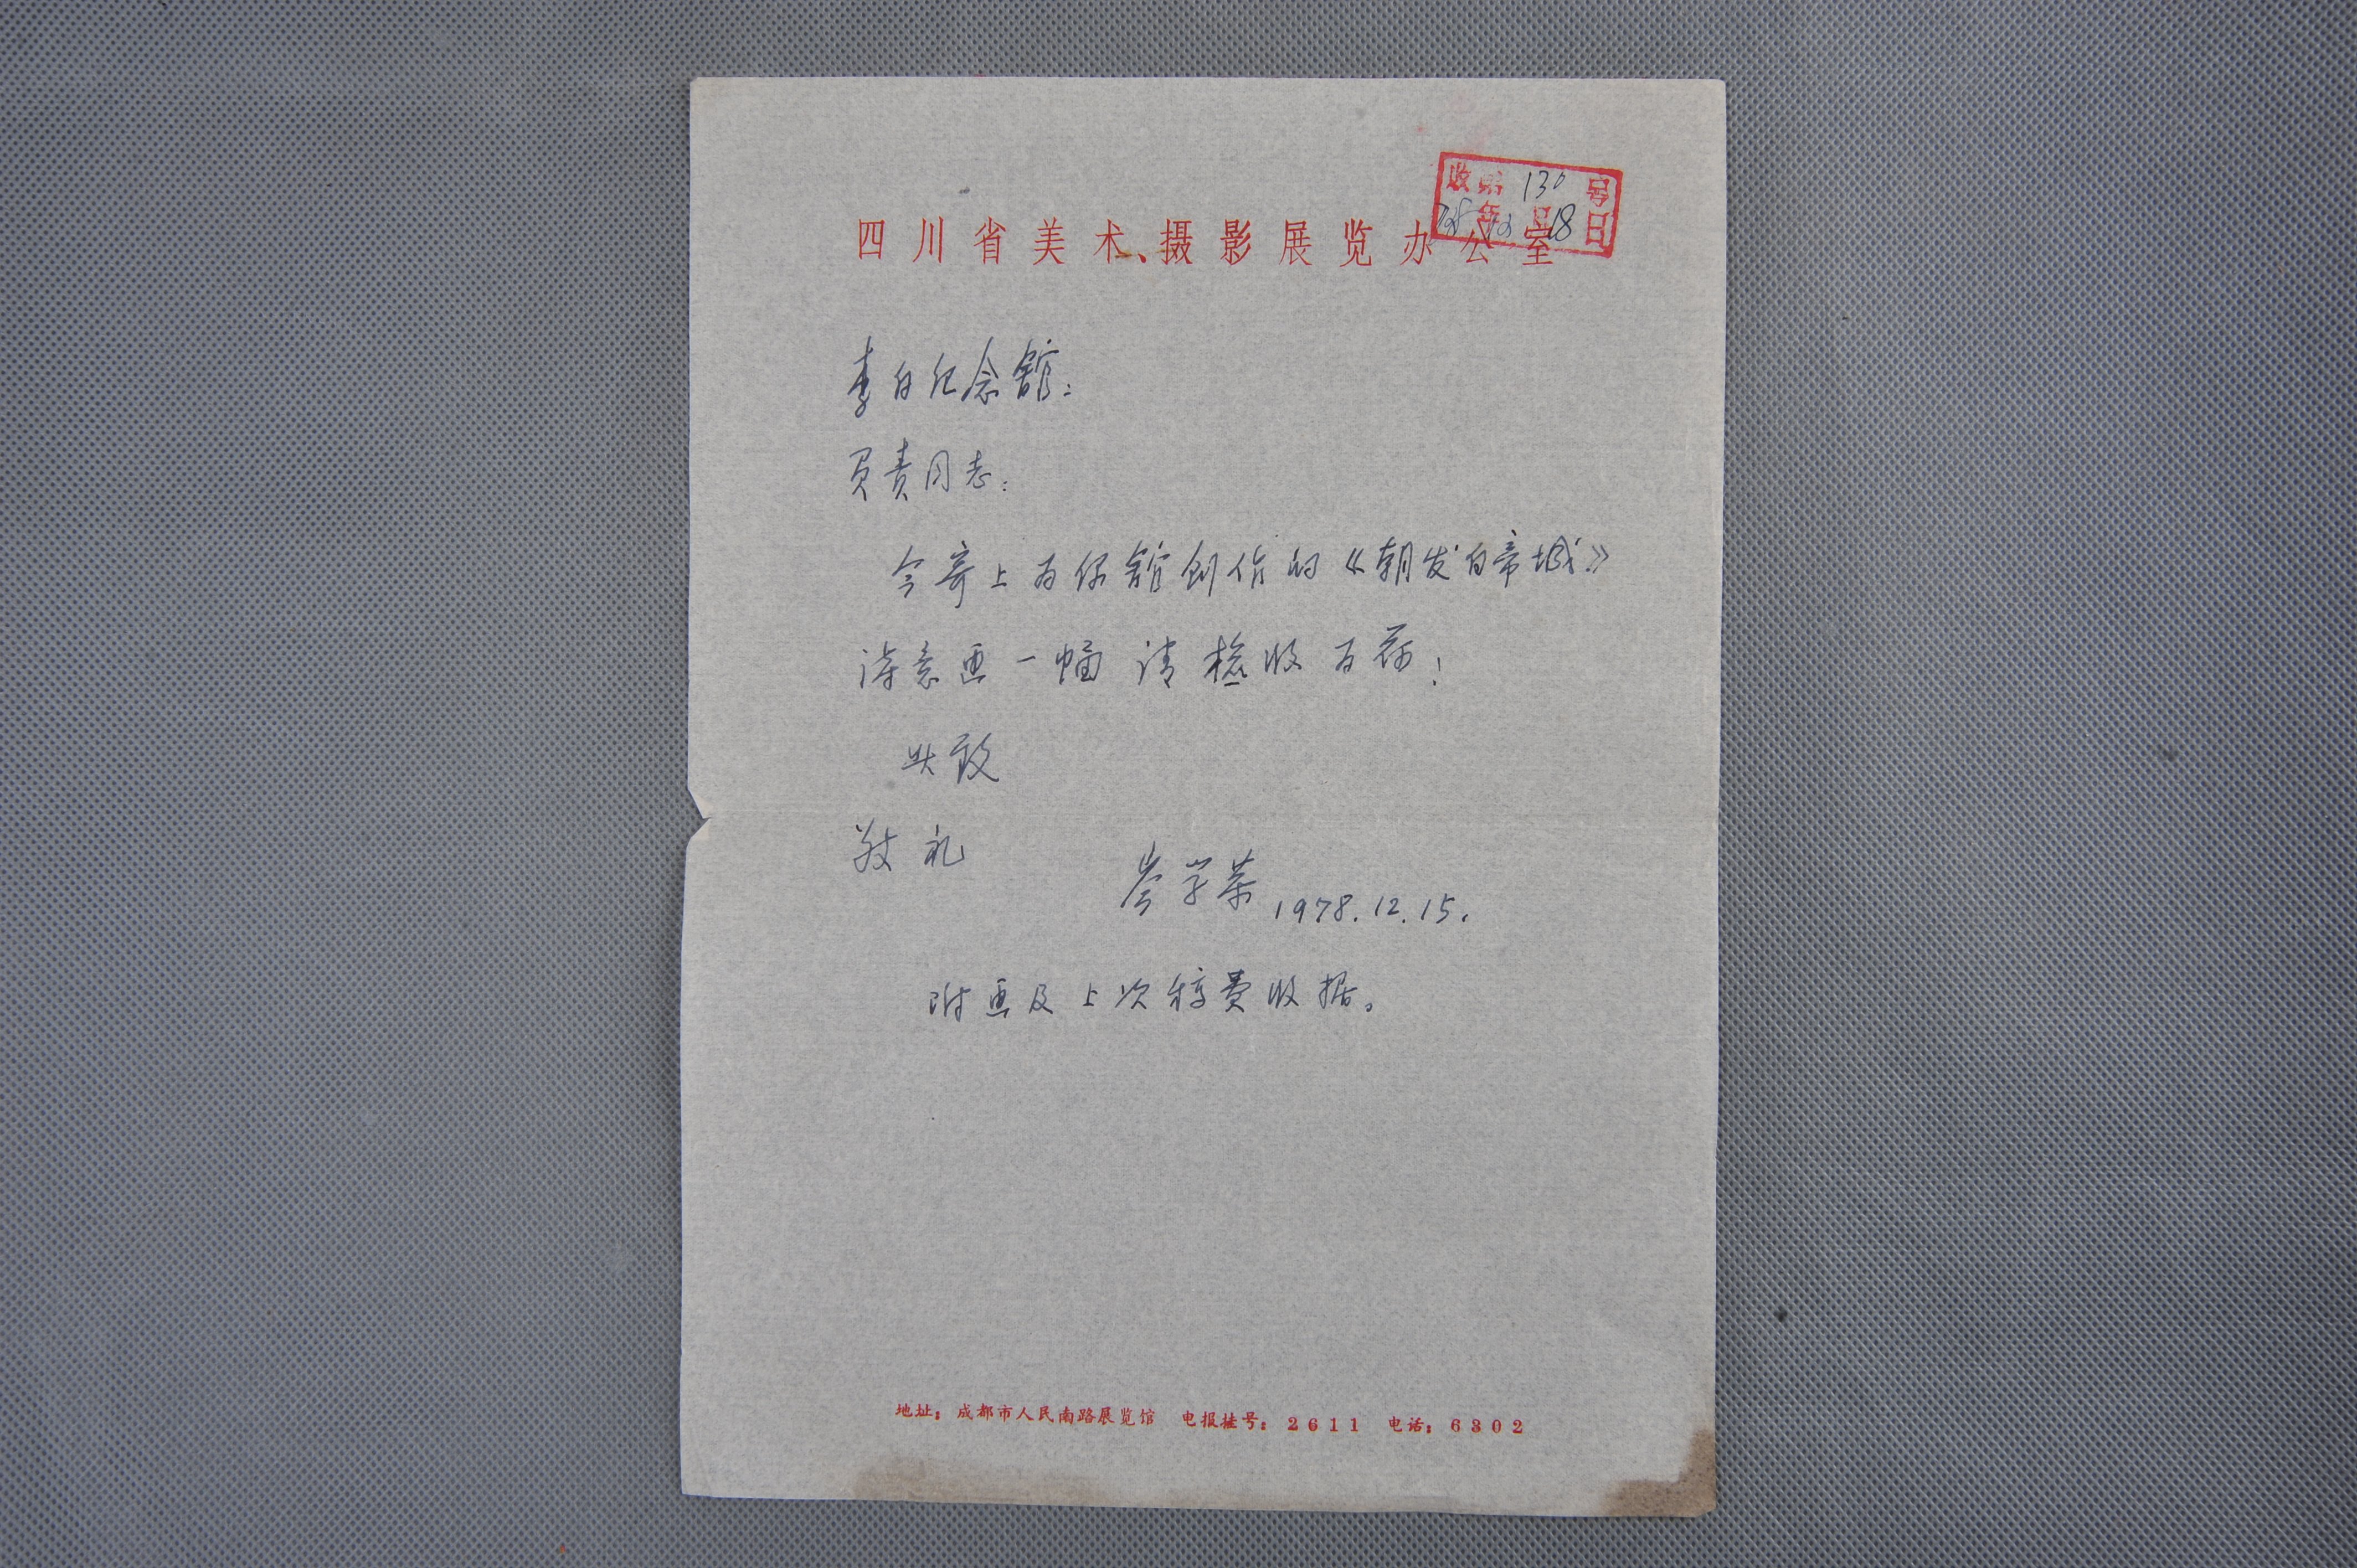 收 第 130 号
78 年 12 月 18 日
四川省美术、摄影展览办公室
李白纪念馆：
负责同志：
今寄上为你馆创作的《朝发白帝城》
诗意画一幅 请检收为荷！
此致
敬礼
岑学恭 1978.12.15.
附画及上次稿费收据。
地址：成都市人民南路展览馆 电报挂号：2611 电话：6302